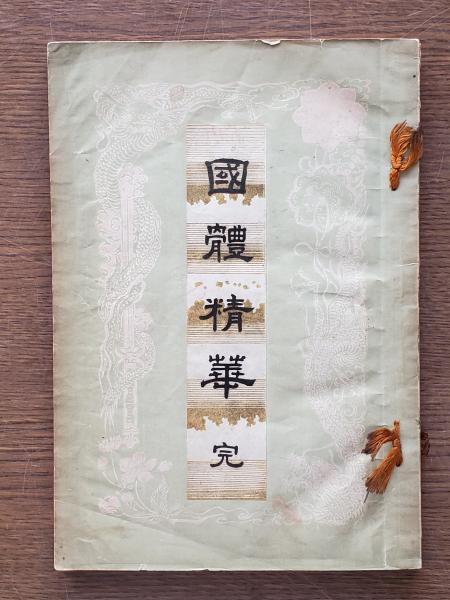 國體精華完